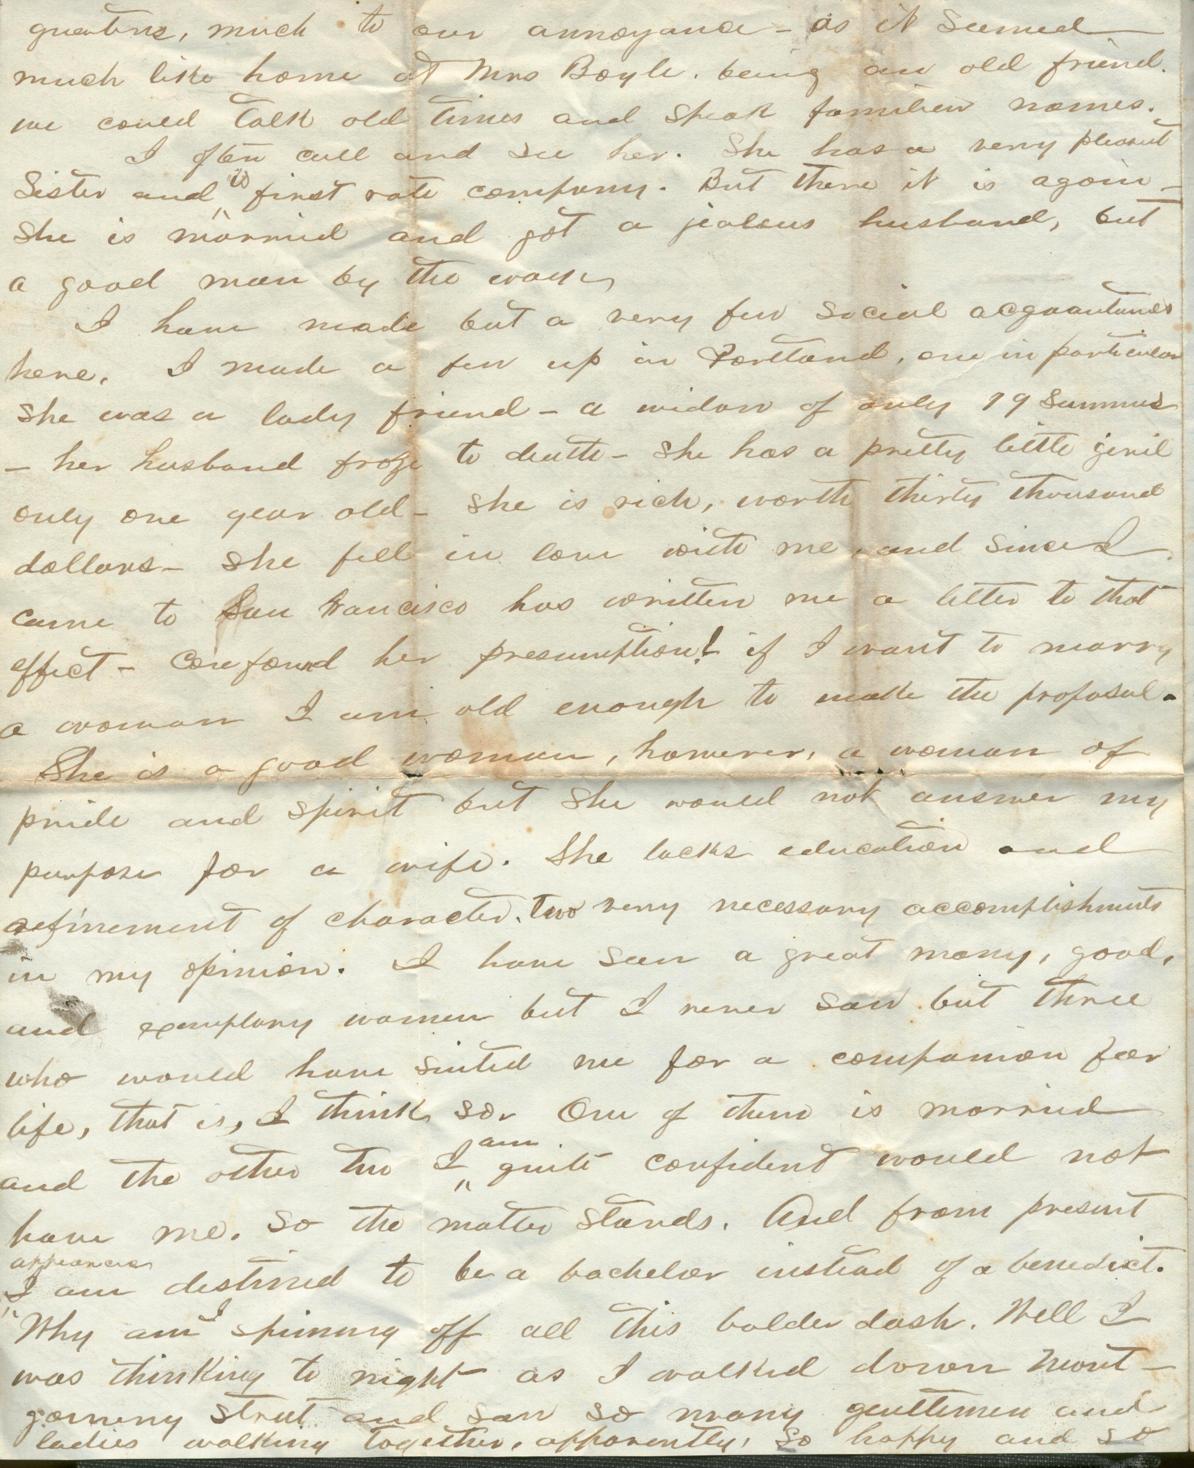 quarters, much to our annoyance - as it seemed
much like home at Mrs Boyle. being an old friend.
we could talk old times and speak familiar names.
I often call and see her. She has a very pleasant
Sister and is first rate company. But there it is again -
She is married and got a jealous husband, but
a good man by the way.
I have made but a very few social acquaintances
here. I made a few up in Portland, one in particular
She was a lady friend - a widow of only 19 Summers
- her husband froze to death - She has a pretty little girl
only one year old - She is rich, worth thirty thousand
dollars - She fell in love with me, and since I
came to San Francisco has written me a letter to that
effect - Confound her presumption! if I want to marry
a woman I am old enough to make the proposal.
She is a good woman, however, a woman of
pride and spirit but She would not answer my
purpose for a wife. She lacks education and
refinement of character. two very necessary accomplishments
in my opinion. I have seen a great many, good,
and exemplary women but I never saw but three
who would have suited me for a companion for
life, that is, I think so. One of them is married
and the other two I am quite confident would not
have me. So the matter stands. And from present
appearances
I am destined to be a bachelor instead of a benedict.
Why am I spinning off all this balder dash. Well I
was thinking to night as I walked down Mont-
gomery Street and saw so many gentlemen and
ladies walking together, apparently, so happy and so